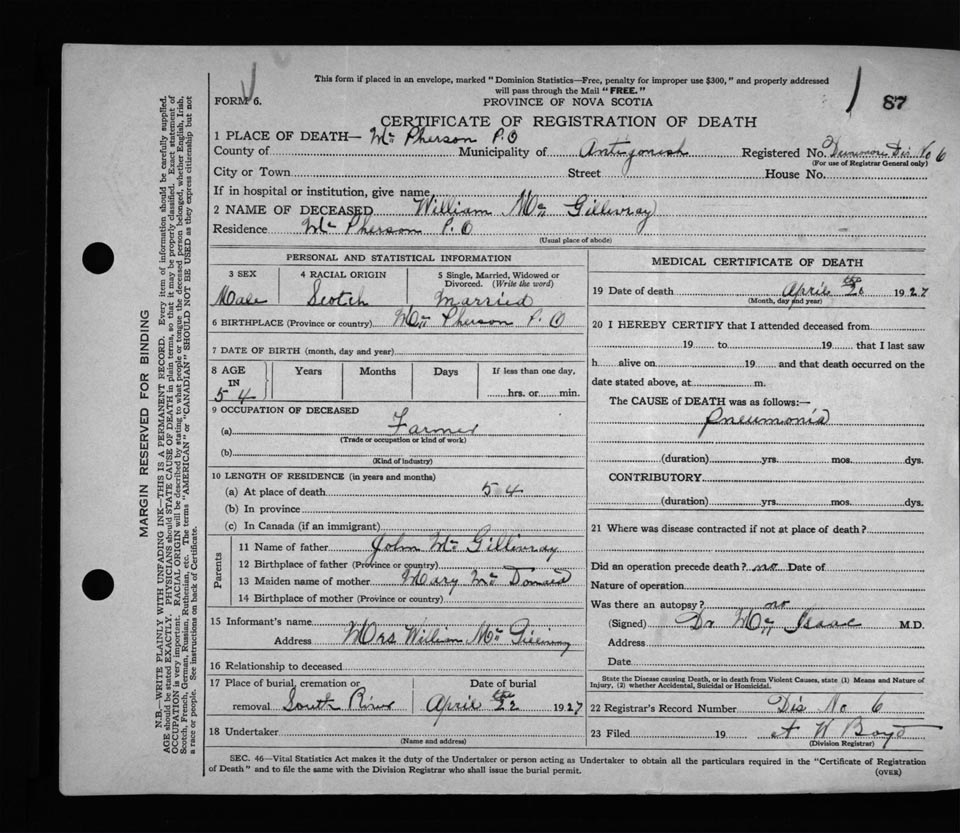 This form if placed in an envelope, marked "Dominion Statistics—Free, penalty for improper use $300," and properly addressed
will pass through the Mail "FREE."
FORM 6.
PROVINCE OF NOVA SCOTIA
87
CERTIFICATE OF REGISTRATION OF DEATH
1 PLACE OF DEATH— Mc Pherson P.O
County of Municipality of Antigonish Registered No. Dis No 6
(For use of Registrar General only)
City or Town Street House No.
If in hospital or institution, give name
2 NAME OF DECEASED William Mc Gillivray
Residence Mc Pherson P.O
(Usual place of abode)
PERSONAL AND STATISTICAL INFORMATION
3 SEX 4 RACIAL ORIGIN 5 Single, Married, Widowed or
Divorced. (Write the word)
Male Scotch Married
6 BIRTHPLACE (Province or country) Mc Pherson P.O
7 DATE OF BIRTH (month, day and year)
8 AGE Years Months Days If less than one day,
IN
54 hrs. or min.
9 OCCUPATION OF DECEASED
(a) Farmer
(Trade or occupation or kind of work)
(b)
(Kind of industry)
10 LENGTH OF RESIDENCE (in years and months)
(a) At place of death 54
(b) In province
(c) In Canada (if an immigrant)
Parents
11 Name of father John Mc Gillivray
12 Birthplace of father (Province or country)
13 Maiden name of mother Mary Mc Donald
14 Birthplace of mother (Province or country)
15 Informant's name
Address Mrs William Mc
16 Relationship to deceased
17 Place of burial, cremation or Date of burial
removal South River April 22 1927
18 Undertaker
(Name and address)
MEDICAL CERTIFICATE OF DEATH
19 Date of death April 1927
(Month, day and year)
20 I HEREBY CERTIFY that I attended deceased from
19 to 19 that I last saw
h alive on 19 and that death occurred on the
date stated above, at m.
The CAUSE of DEATH was as follows:—
Pneumonia
(duration) yrs. mos. dys.
CONTRIBUTORY
(duration) yrs. mos. dys.
21 Where was disease contracted if not at place of death?
Did an operation precede death? no Date of
Nature of operation
Was there an autopsy? no
(Signed) Dr Mc Isaac M.D.
Address
Date
State the Disease causing Death, or in death from Violent Causes, state (1) Means and Nature of
Injury, (2) whether Accidental, Suicidal or Homicidal.
22 Registrar's Record Number Dis No 6
23 Filed 19 A W Boyd
(Division Registrar)
SEC. 46—Vital Statistics Act makes it the duty of the Undertaker or person acting as Undertaker to obtain all the particulars required in the "Certificate of Registration
of Death" and to file the same with the Division Registrar who shall issue the burial permit.
(OVER)
MARGIN RESERVED FOR BINDING
N.B.—WRITE PLAINLY WITH UNFADING INK—THIS IS A PERMANENT RECORD. Every item of information should be carefully supplied.
AGE should be stated EXACTLY. PHYSICIANS should STATE CAUSE OF DEATH in plain terms, so that it may be properly classified. Exact statement of
OCCUPATION is very important. RACIAL ORIGIN will be described by stating to what people or tongue the deceased person belonged, whether English, Irish,
Scotch, French, German, Russian, Ruthenian, etc. The terms "AMERICAN" or "CANADIAN" SHOULD NOT BE USED as they express citizenship but not
a race or people. See instructions on back of Certificate.